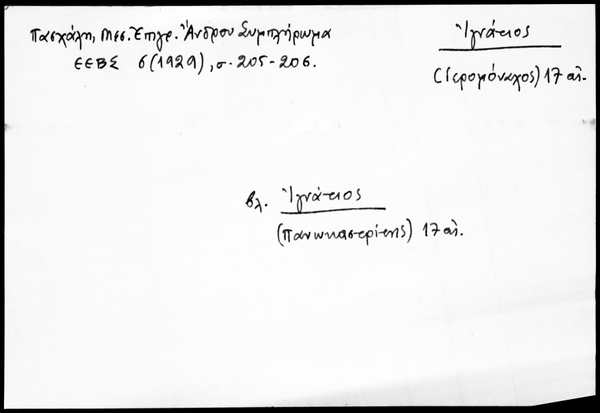 Πασχάλη, Μεσ. Ἐπιγρ. Ἄνδρου Συμπλήρωμα
ΕΕΒΣ 6(1929), σ. 205-206.
Ἰγνάτιος
(Ἱερομόναχος) 17 αἰ.
βλ. Ἰγνάτιος
(Πανωκαστρίτης) 17 αἰ.